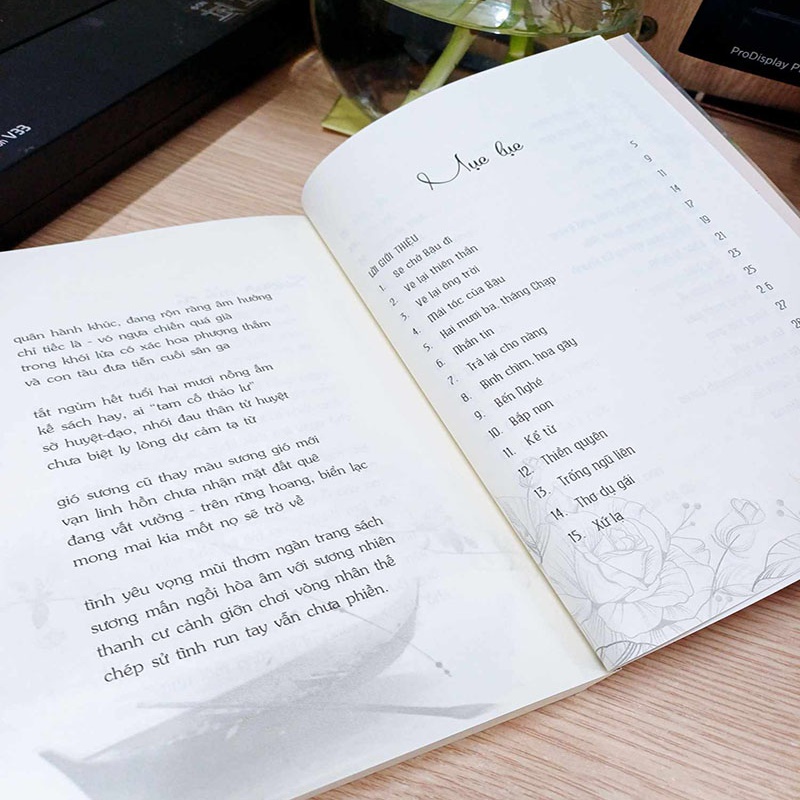 quân hành khúc, đang rộn ràng âm hưởng
chỉ tiếc là - vó ngựa chiến quá già
trong khói lửa có xác hoa phượng thắm
và con tàu đưa tiễn cuối sân ga
tắt ngùm hết tuổi hai mươi nồng ấm
kế sách hay, ai “tam cố thảo lư”
sờ huyệt-đạo, nhói đau thân tử huyệt
chưa biệt ly lòng dự cảm tạ từ
gió sương cũ thay màu sương gió mới
vạn linh hồn chưa nhận mặt đất quê
đang vất vưởng - trên rừng hoang, biển lạc
mong mai kia mốt nọ sẽ trở về
tình yêu vọng mùi thơm ngàn trang sách
sương mấn ngồi hòa âm với sương nhiên
thanh cư cảnh giỡn chơi vòng nhân thế
chép sử tình run tay vẫn chưa phiền.
Mục lục
LỜI GIỚI THIỆU 5
1. Se chờ Bậu đi 9
2. Ve lại thiên thần 11
3. Ve lại ông trời 14
4. Mái tóc của Bậu 17
5. Hai mươi ba, tháng Chạp 19
6. Nhắn tin 21
7. Trả lại cho nàng 23
8. Bình chìm, hoa gãy 25
9. Bến Nghé 26
10. Bắp non 27
11. Kể từ
12. Thiền quyên
13. Trống ngũ liên
14. Thơ dụ gái
15. Xứ lạ
V33
ProDisplay P